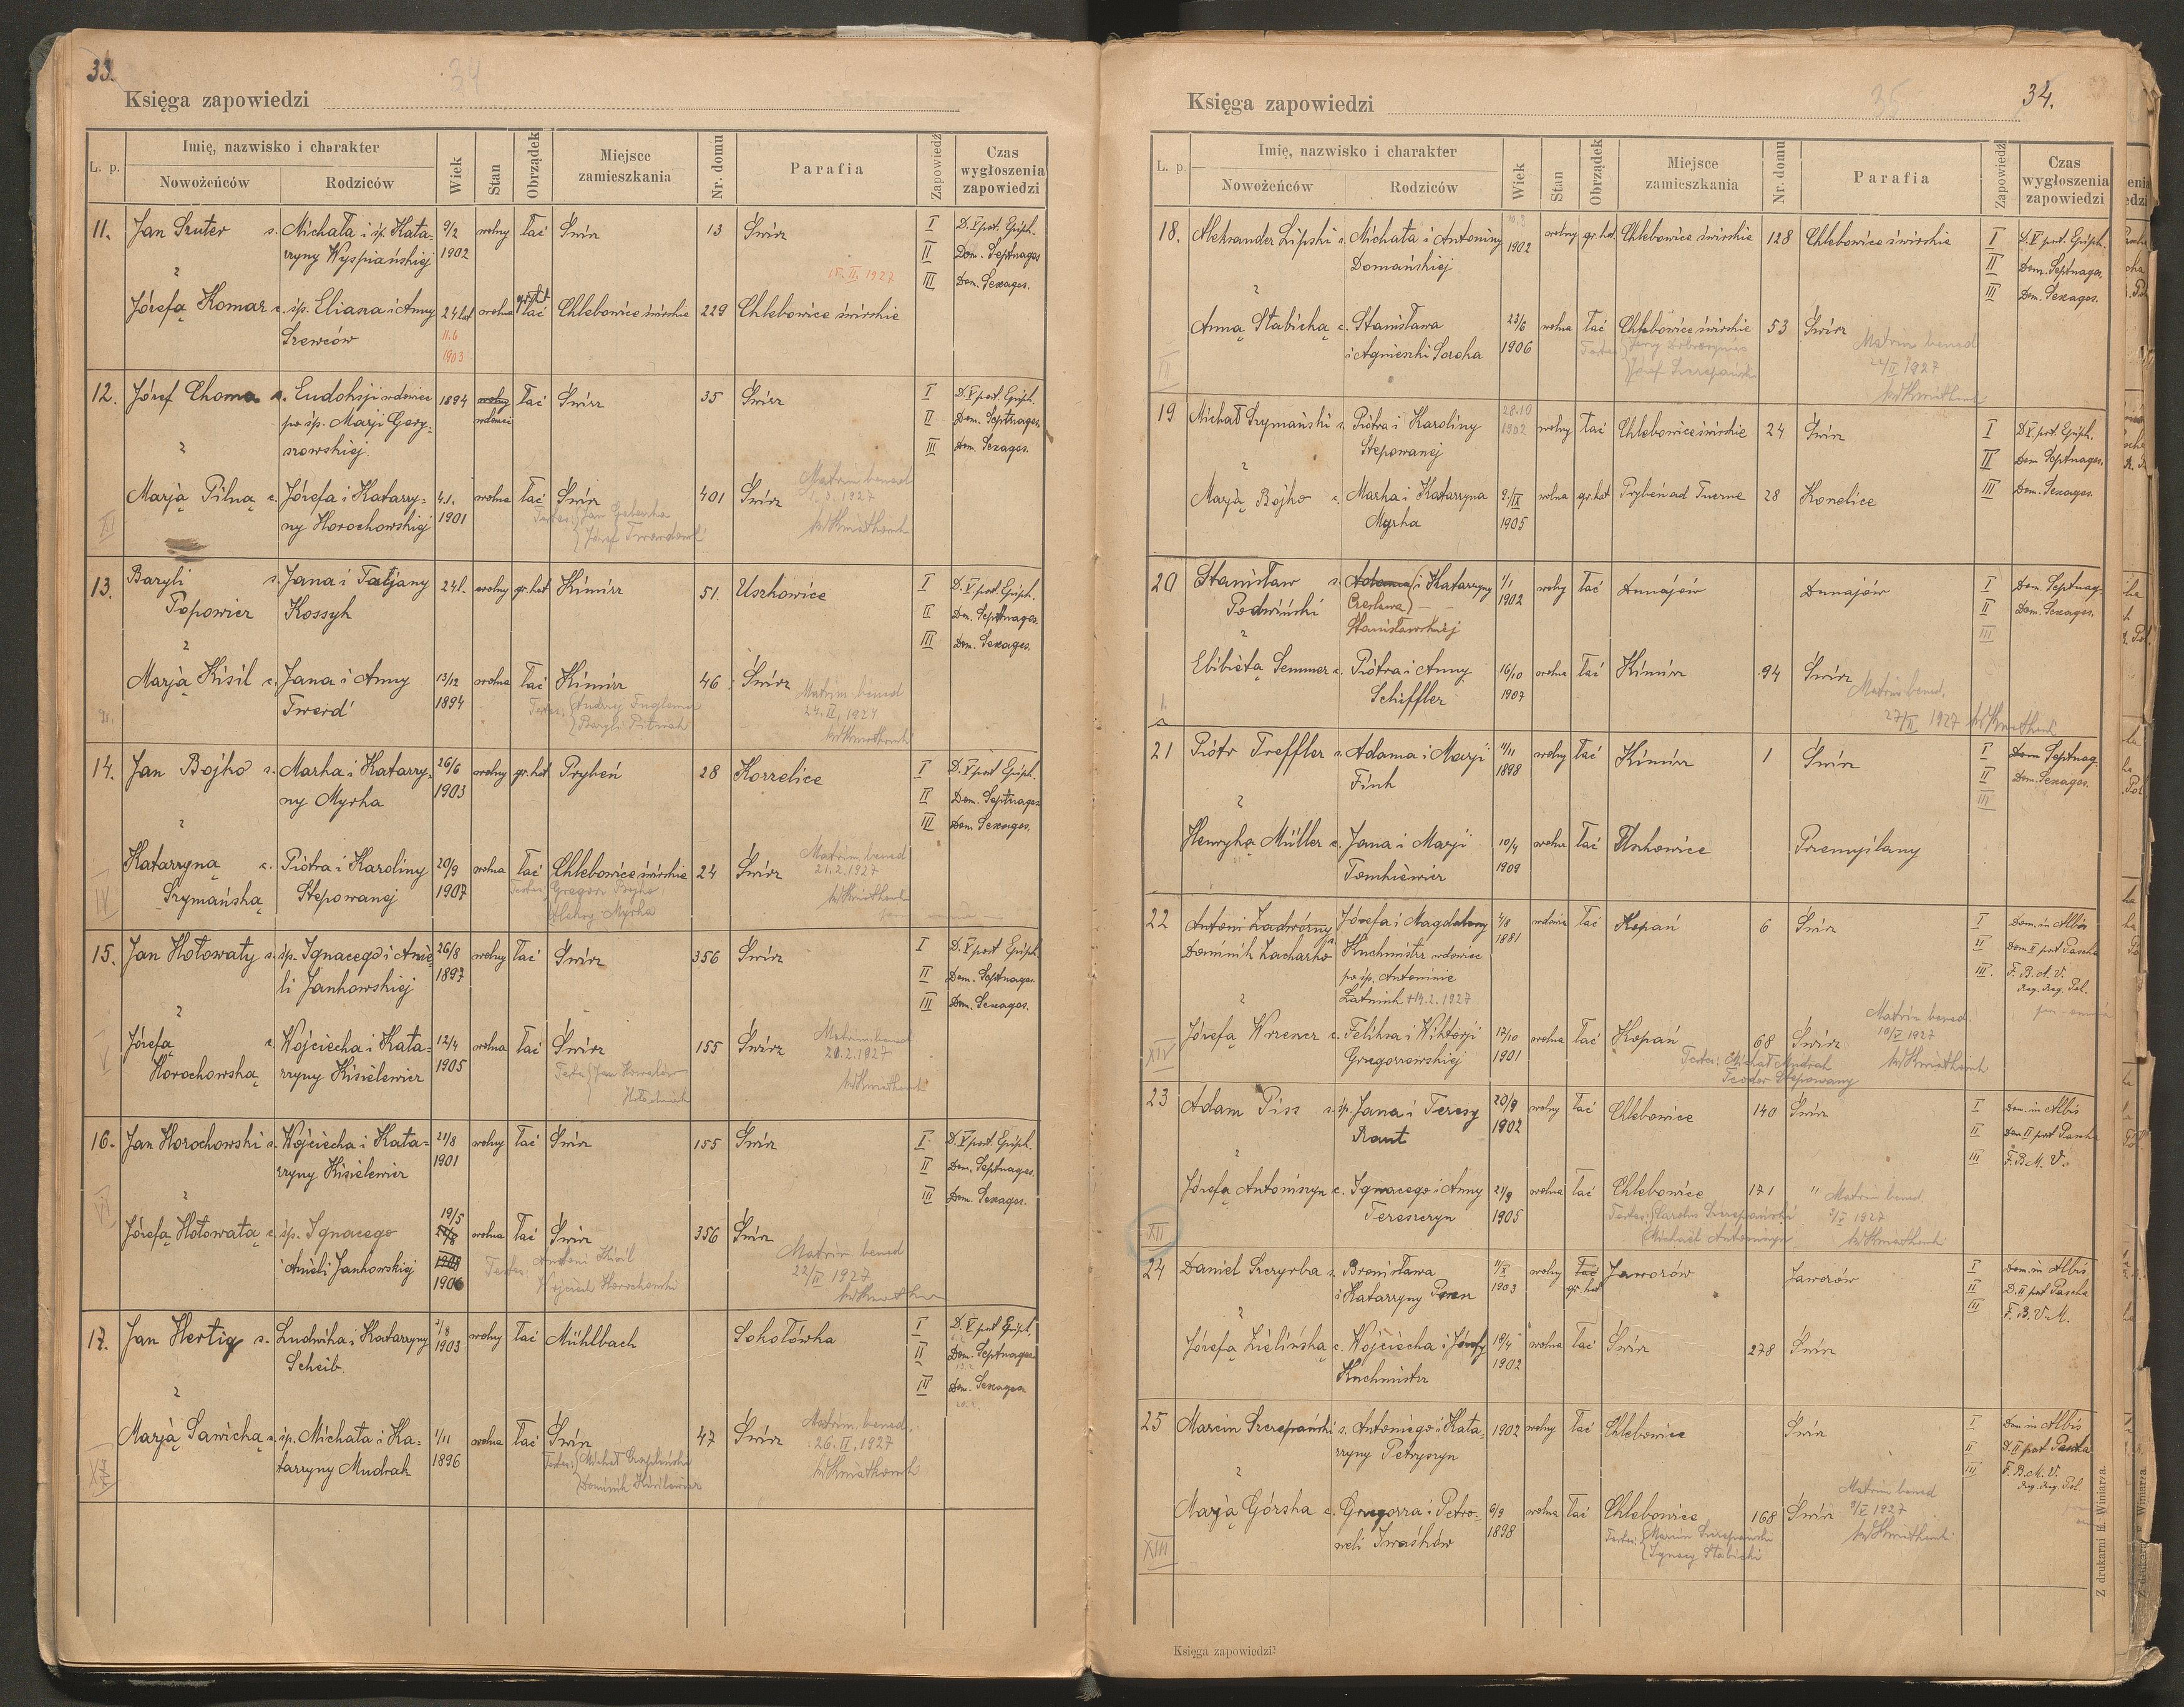 33.
34
Księga zapowiedzi
L. p.
Imię, nazwisko i charakter
Nowożeńców
Rodziców
Wiek
Stan
Obrządek
Miejsce
zamieszkania
Nr. domu
Parafia
Zapowiedź
Czas
wygłoszenia
zapowiedzi
11. Jan Szuter s. Michała i śp. Kata- 9/2 wolny łać Świrz 13 Świrz I D. V post. Epiph.
rzyny Wyspiańskiej 1902 II Dom. Septuages.
z 15. II. 1927 III Dom. Sexages.
gr. kat
Józefą Komar c. śp. Eliasza i Anny 24 lat wolna łać Chlebowice świrskie 229 Chlebowice świrskie
Szewców 11.6
1903
12. Józef Choma s. Eudoksji wdowiec 1894 wolny łać Świrz 35 Świrz I D. V post. Epiph.
po śp. Marji Gory- wdowiec II Dom. Septuages.
z szowskiej. III Dom. Sexages.
Marją Pilną c. Józefa i Katarzy- 4.1. wolna łać Świrz 401 Świrz Matrim. bened
ny Horochowskiej 1901 Testes: Jan 1.3.1927
XI Józef
13. Bazyli s. Jana i Tatjany 24 l. wolny gr. kat Kimirz 51. Uszkowice I D. V post. Epiph.
Popowicz Kossyk II Dom. Septuages.
z III Dom. Sexages.
Marją Kisil c. Jana i Anny 13/12 wolna łać Kimirz 46 Świrz Matrim. bened
Tweid 1894 Testes: Andrzej 24. II. 1927
Bazyli Pitucah
14. Jan Bojko s. Marka i Katarzy- 26/6 wolny gr. kat Prybeń 28 Korzelice I D. V post Epiph.
ny Myrka 1903 II Dom. Septuages
z III Dom. Sexages.
Katarzyną c. Piotra i Karoliny 20/9 wolna łać Chlebowice świrskie 24 Świrz Matrim. bened
Szymańską Stepowanej 1907 Testes: Gregorz Bojko 21.2.1927
IV Myrka
15. Jan Hołowaty s. śp. Ignacego i Anie- 26/8 wolny łać Świrz 356 Świrz I D. V post Epiph.
li Jankowskiej 1897 II Dom. Septuages.
z III Dom. Sexages.
Józefą c. Wojciecha i Kata- 12/4 wolna łać Świrz 155 Świrz Matrim. bened
Horochowską rzyny Kisielewicz 1905 Testes: Jan Kowalów 20.2.1927
V
16. Jan Horochowski s. Wojciecha i Kata- 21/8 wolny łać Świrz 155 Świrz I D. V post. Epiph.
rzyny Kisielewicz 1901 II Dom. Septuages.
z III Dom. Sexages.
VI 19/5
Józefą Hołowatą c. śp. Ignacego wolna łać Świrz 356 Świrz
i Anieli Jankowskiej 1906 Testes: Antoni Kisil Matrim bened
Wojciech Horochowski 22/II 1927
17. Jan Hertig s. Ludwika i Katarzyny 2/8 wolny łać Mühlbach Sokołówka I D. V post Epiph.
Scheib. 1903 II Dom. Septuages
z III Dom. Sexages
Marją Sawicką c. śp. Michała i Ka- 1/11 wolna łać Świrz 47 Świrz Matrim. bened.
tarzyny Mudrak 1896 Testes: Michał 26. II. 1927
Dominik Kisilewicz
34.
35
Księga zapowiedzi
L. p.
Imię, nazwisko i charakter
Nowożeńców
Rodziców
Wiek
Stan
Obrządek
Miejsce
zamieszkania
Nr. domu
Parafia
Zapowiedź
Czas
wygłoszenia
zapowiedzi
18. Aleksander Lipski s. Michała i Antoniny 1902 wolny gr. kat. Chlebowice świrskie 128 Chlebowice świrskie I D. V post Epiph.
Domańskiej II Dom. Septuages.
z III Dom. Sexages.
Anną Stabicką c. Stanisława 23/6 wolna łać Chlebowice świrskie 53 Świrz Matrim bened
i Agnieszki Soroka 1906 Testes: 22/II 1927
Józef Szczepański
19 Michał Szymański s. Piotra i Karoliny 28.10 wolny łać Chlebowice świrskie 24 Świrz I D. V post. Epiph.
Stepowanej 1902 II Dom Septuages.
z III Dom. Sexages.
Marją Bojko c. Marka i Katarzyna 9/IX wolna gr. kat Prybeń ad Tuczne 28 Korzelice
Myrka 1905
20 Stanisław s. Adama (i Katarzyny 1/1 wolny łać Dunajów Dunajów I Dom. Septuag.
Podwiński Czesława) 1902 II Dom. Sexages.
z Stanisławskiej III
Elżbietą Semmer c. Piotra i Anny 16/10 wolna łać Kimirz 94 Świrz
Schiffler 1907 Matrim bened.
27/II 1927
21 Piotr Treffler s. Adama i Marji 11/11 wolny łać Kimirz 1 Świrz I Dom Septuag.
Fink 1898 II Dom. Sexages.
z III
Henryką Müller c. Jana i Marji 10/4 wolna łać Uszkowice Przemyślany
Tomkiewicz 1909
22 Antoni Zadwórny Józefa i Magdaleny 4/8 wdowiec łać Kopań 6 Świrz I Dom. in Albis
Dominik Zacharko Kuchmistrz wdowiec 1881 II Dom II post Pascha
po śp. Antoninie III. F. B. M. V.
z Łatniuk +14.2.1927 Reg. Reg. Pol.
Józefą Wrzencz c. Feliksa i Wiktorji 17/10 wolna łać Kopań 68 Świrz Matrim bened.
Gregorzewskiej 1901 Testes: Michał Mudrak 10/V 1927
XIV Teodor Stepowany
23 Adam Piss s. śp. Jana i Teresy 20/9 wolny łać Chlebowice 140 Świrz I Dom. in Albis
Raut 1902 II Dom II post Pascha
z III F. B. M. V.
Józefą Antoniszyn c. Ignacego i Anny 21/9 wolna łać Chlebowice 171 " Matrim bened.
Tereszczyn 1905 Testes: Carolus Szczepański 3/V 1927
XII Michael Antoniszyn
24 Daniel Szczyrba s. Bronisława 11/X wolny łać Jaworów Jaworów I Dom. in Albis
i Katarzyny 1903 gr. kat II D. II post Pascha
z III F. B. V. M.
Józefą Zielińską c. Wojciecha i Józefy 18/4 wolna łać Świrz 278 Świrz
Kuchmistrz 1902
25 Marcin Szczepański s. Antoniego i Kata- 1902 wolny łać Chlebowice Świrz I Dom in Albis
rzyny Petryszyn II D. II post Pascha
z III F. B. M. V.
Reg. Reg. Pol.
Marją Górska c. Gregorza i Petro- 6/9 wolna łać Chlebowice 168 Świrz Matrim bened
neli Iwaśków 1898 Testes: Marcin Szczepański 9/V 1927
XIII Ignacy Stabicki
Z drukarni E. Winiarza.
Księga zapowiedzi